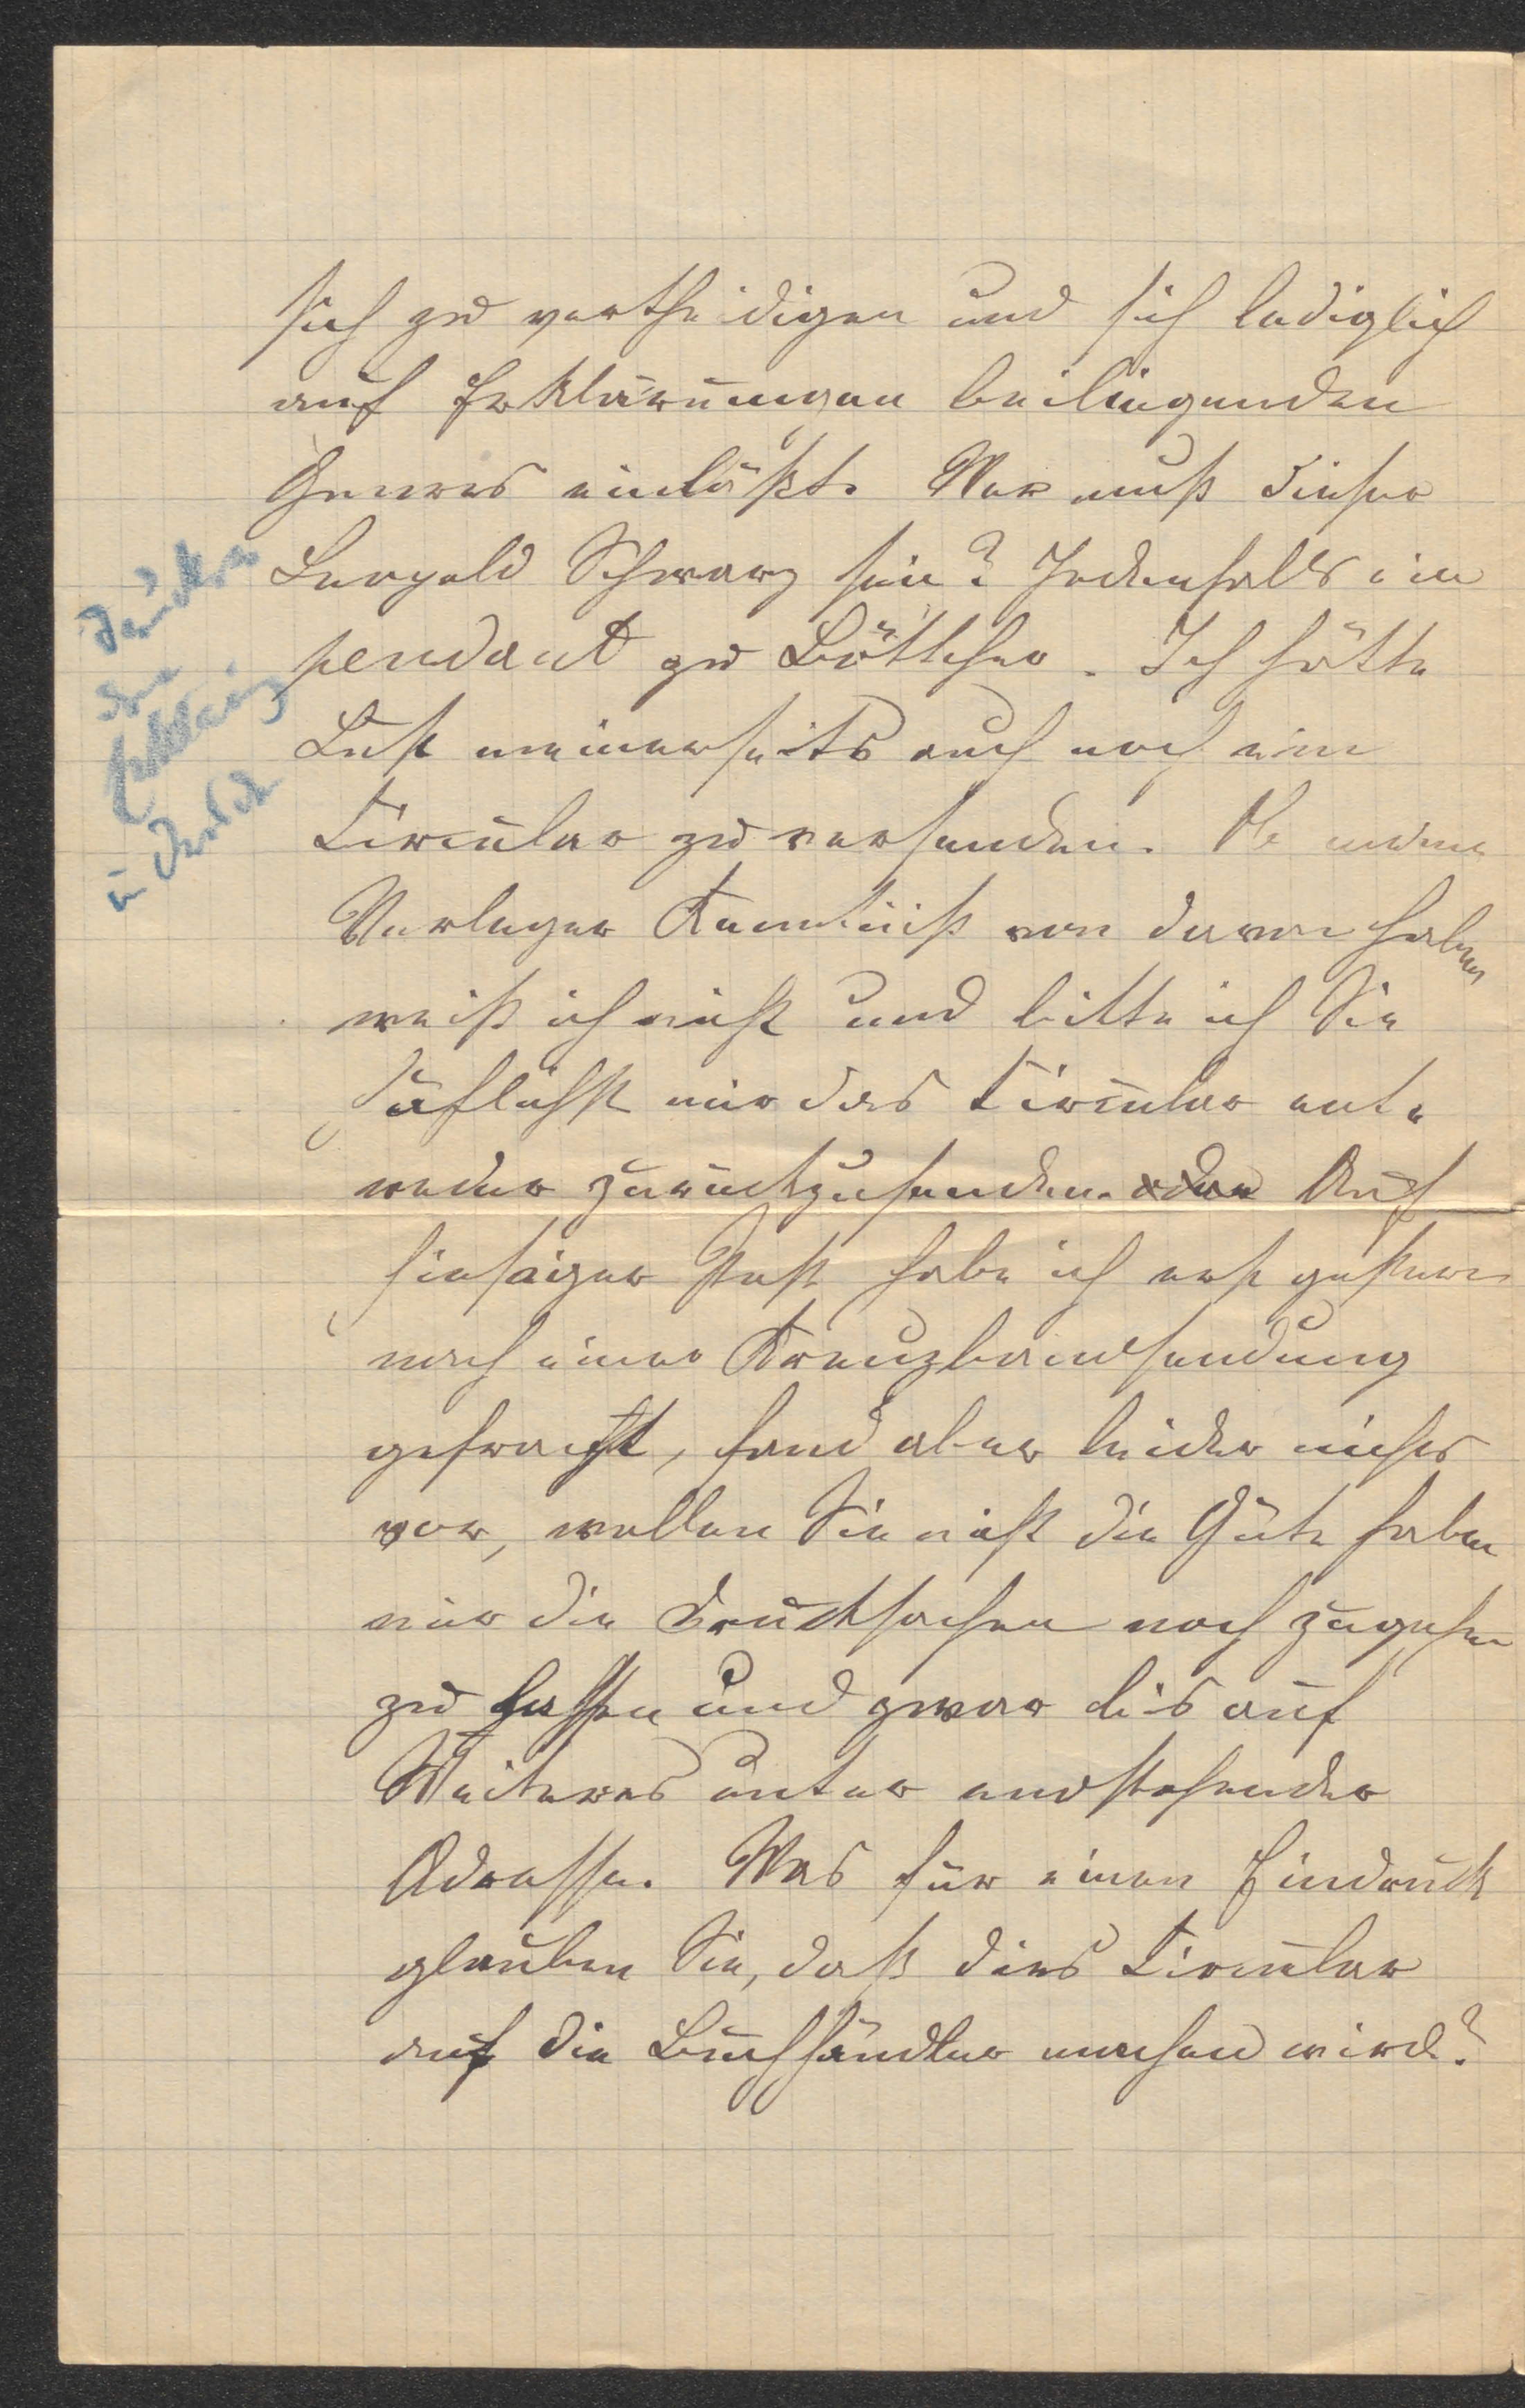 sich zu vertheidigen und sich lediglich
auf Erklärungen beiliegenden
Genres einläßt. Wer muß dieser
Leopold Schwarz sein? Jedenfalls ein
pendant zu Böttcher. Ich hätte
Lust meinerseits auch noch ein
Circular zu versenden. Ob meine
Verleger Kenntniß von davon haben
weiß ich nicht und bitte ich Sie
höflichst mir das Circular ent-
weder zurückzusenden. oder Auf
hiesiger Post habe ich erst gestern
nach einer Kreuzbandsendung
gefragt, fand aber leider nichts
vor, wollen Sie nicht die Güte haben
mir die Drucksachen noch zugehen
zu lassen und zwar bis auf
Weiteres unter endstehender
Adresse. Was für einen Eindruck
glauben Sie, daß dies Circular
auf die Buchhändler machen wird?